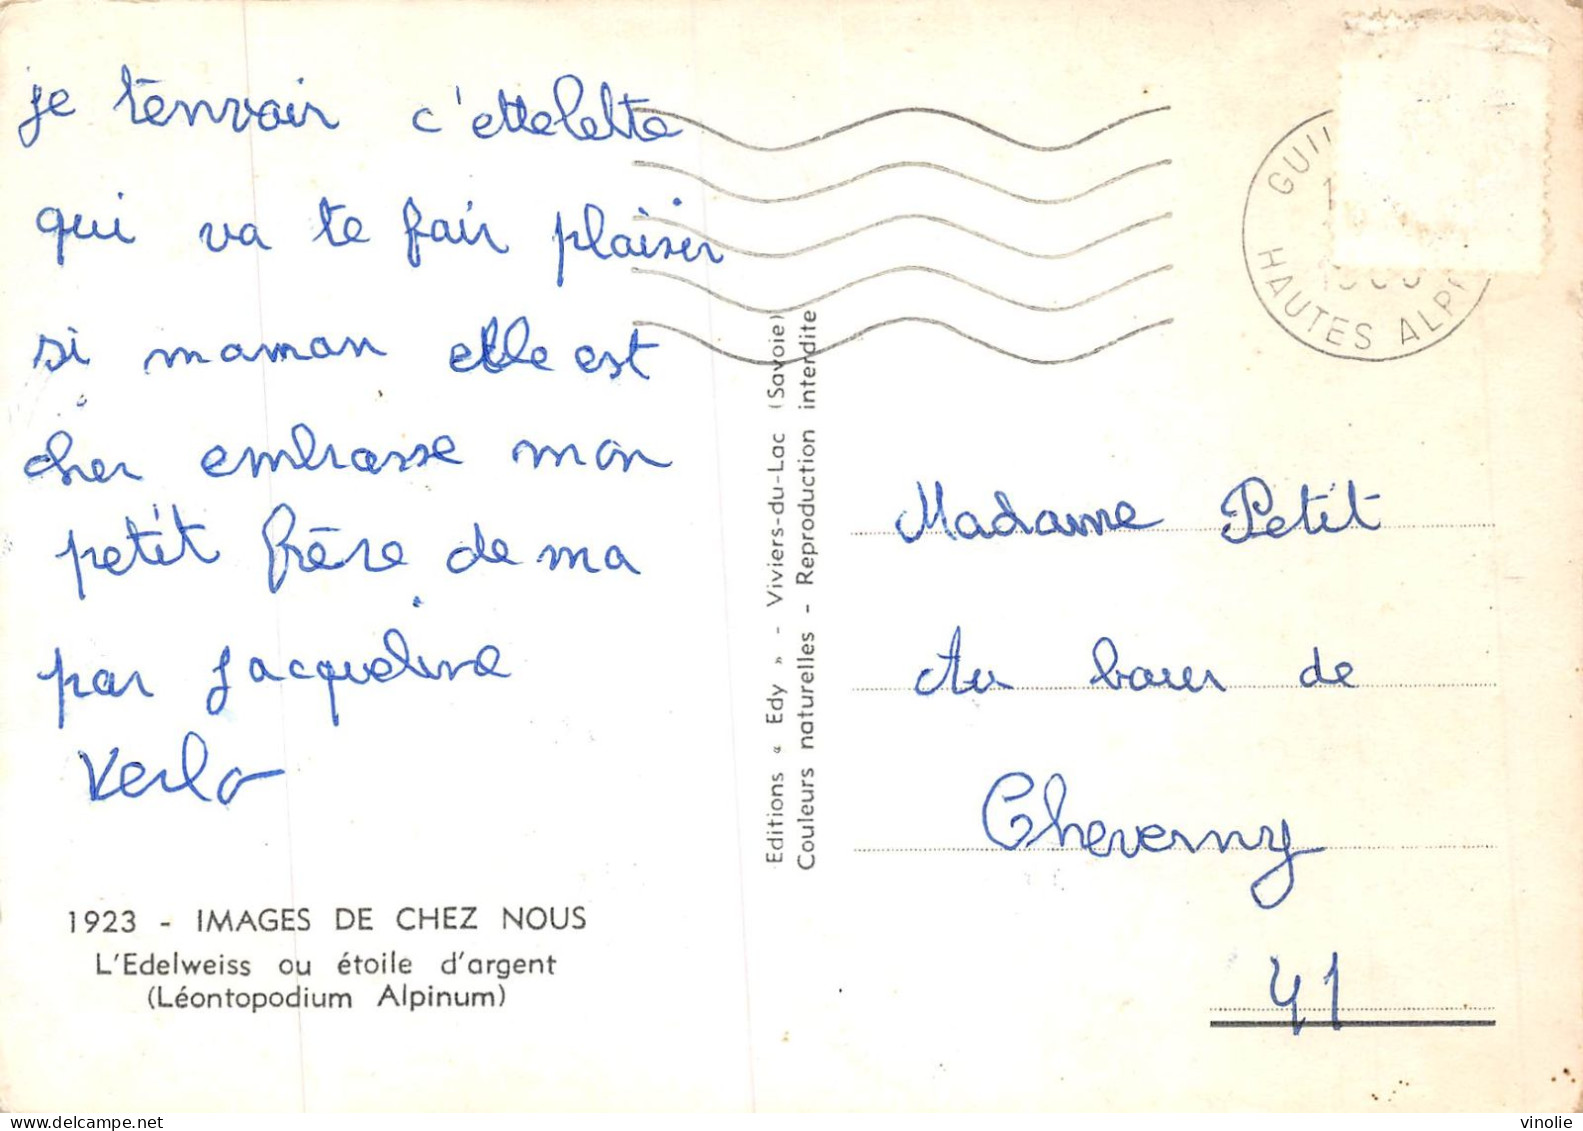 je t'envoir c'ettelette
qui va te fair plaisir
si maman elle est
cher embrasse mon
petit frère de ma
par Jacqueline
1923 - IMAGES DE CHEZ NOUS
L'Edelweiss ou étoile d'argent
(Léontopodium Alpinum)
Editions « Edy » - Viviers-du-Lac (Savoie)
Couleurs naturelles - Reproduction interdite
HAUTES ALP
Madame Petit
Au bour de
Cheverny
41
vinolie